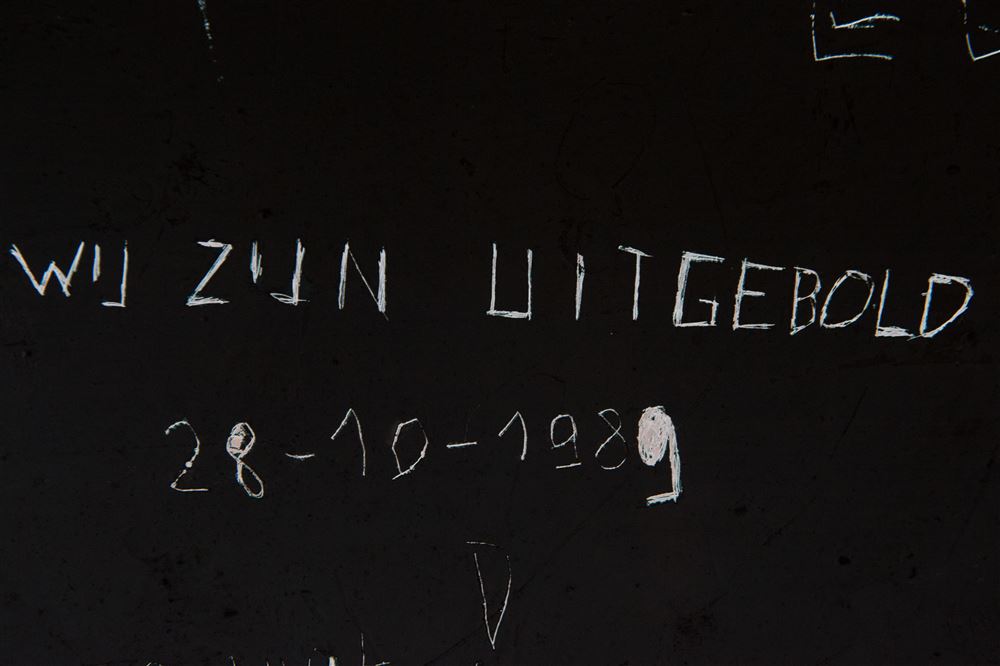 WIJ ZIJN UITGEBOLD
28-10-1989
D